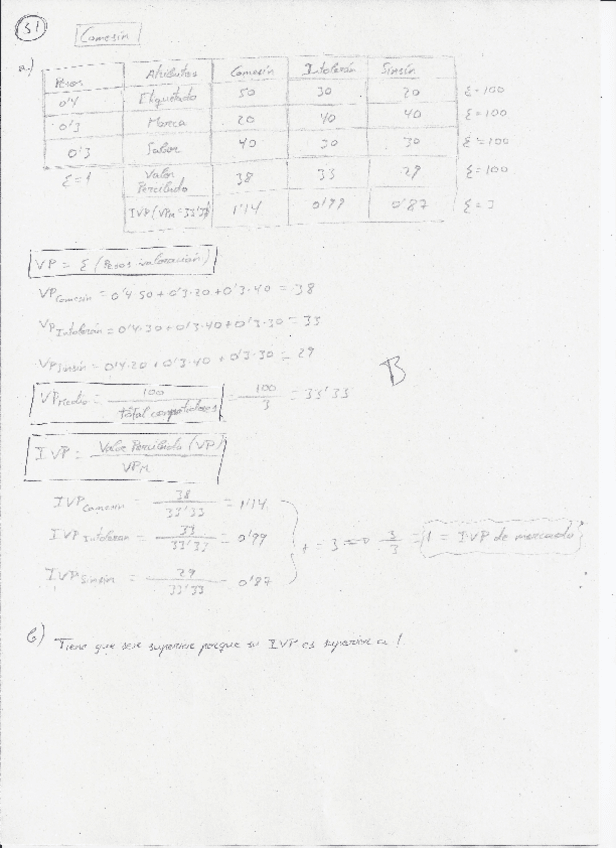 51
Comesín
a.)
Pesos Atributos Comesín Intolerán Sinsín
0'4 Etiquetado 50 30 20 Σ=100
0'3 Marca 20 40 40 Σ=100
0'3 Sabor 40 30 30 Σ=100
Σ=1 Valor Percibido 38 33 29 Σ=100
IVP(VPM=33'33) 1'14 0'99 0'87 Σ=3
VP = Σ (Pesos · valoración)
VP Comesín = 0'4·50+0'3·20+0'3·40 = 38
VP Intolerán = 0'4·30+0'3·40+0'3·30 = 33
VP Sinsín = 0'4·20+0'3·40+0'3·30 = 29
B
VP Medio = 100 / total competidores = 100 / 3 = 33'33
IVP = Valor Percibido (VP) / VPM
IVP Comesín = 38 / 33'33 = 1'14
IVP Intolerán = 33 / 33'33 = 0'99
+ = 3 => 3/3 = 1 = IVP de mercado
IVP Sinsín = 29 / 33'33 = 0'87
b) Tiene que ser superior porque su IVP es superior a 1